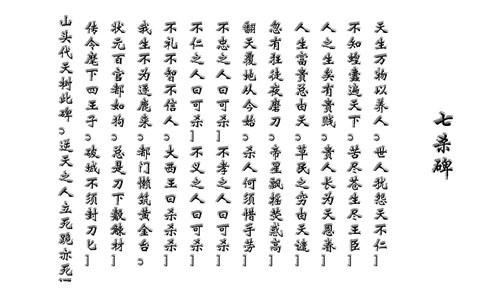 七杀碑
天生万物以养人，世人犹怨天不仁!
不知蝗蠹遍天下，苦尽苍生尽王臣!
人之生矣有贵贱，贵人长为天恩眷!
人生富贵总由天，草民之穷由天谴!
忽有狂徒夜磨刀，帝星飘摇荧惑高!
翻天覆地从今始，杀人何须惜手劳!
不忠之人曰可杀!不孝之人曰可杀!
不仁之人曰可杀!不义之人曰可杀!
不礼不智不信人，大西王曰杀杀杀!
我生不为逐鹿来，都门懒筑黄金台!
状元百官都如狗，总是刀下觳觫材!
传令麾下四王子，破城不须封刀匕!
山头代天树此碑，逆天之人立死跪亦死!